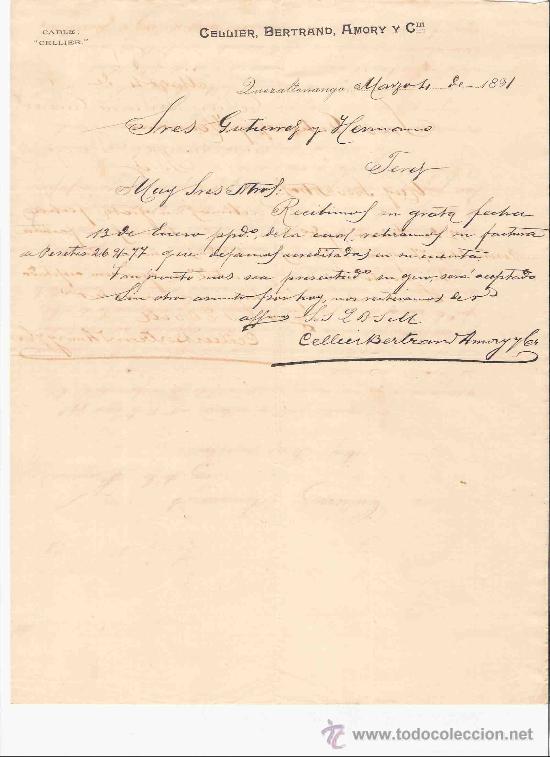 CABLE:
"CELLIER."
CELLIER, BERTRAND, AMORY Y Cía
Quezaltenango, Marzo 4 de 1891
Sres Gutierrez y Hermano
Jerez
Muy Sres Ntros:
Recibimos su grata fecha
13 de Enero ppdo, de la cual retiramos su factura
a Pesetas 269-77 que dejamos acreditadas en su cuenta
Tan pronto nos sea presentado su giro, será aceptado
Sin otro asunto por hoy, nos retiramos de V
affmos Ss Q B S M
Cellier Bertrand Amory y Ca
todocoleccion
www.todocoleccion.net